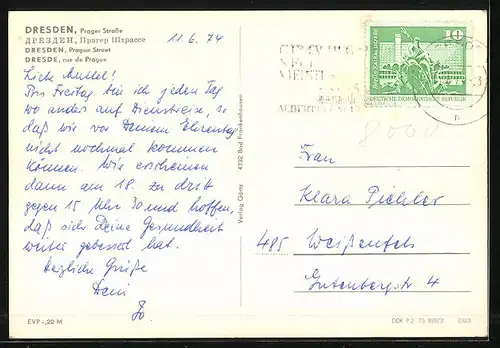 DRESDEN, Prager Straße
ДРЕЗДЕН, Прагер Штрассе
DRESDEN, Prague Street
DRESDE, rue de Prague
11.6.74
Liebe Muttel!
Bis Freitag bin ich jeden Tag
wo anders auf Dienstreise, so
daß wir vor Deinem Ehrentag
nicht nochmal kommen
können. Wir erscheinen
dann am 18. zu dritt
gegen 15 Uhr 30 und hoffen,
daß sich Deine Gesundheit
weiter gebessert hat.
Herzliche Grüße
Dein
EVP -,20 M
Verlag Görtz 4732 Bad Frankenhausen
10
DEUTSCHE DEMOKRATISCHE REPUBLIK
8000
Frau
Klara Pichler
485 Weißenfels
Gutenbergstr. 4